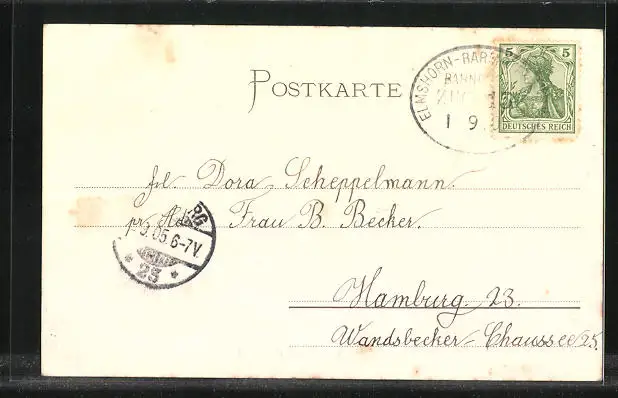 POSTKARTE
ELMSHORN-BARM
BAHNP
ZUG
1 9.
5 5
DEUTSCHES REICH
frl. Dora Scheppelmann.
pr. Adr. Frau B. Becker.
RG
9.05.6-7V.
* 23 *
Hamburg. 23.
Wandsbecker-Chaussee 25.